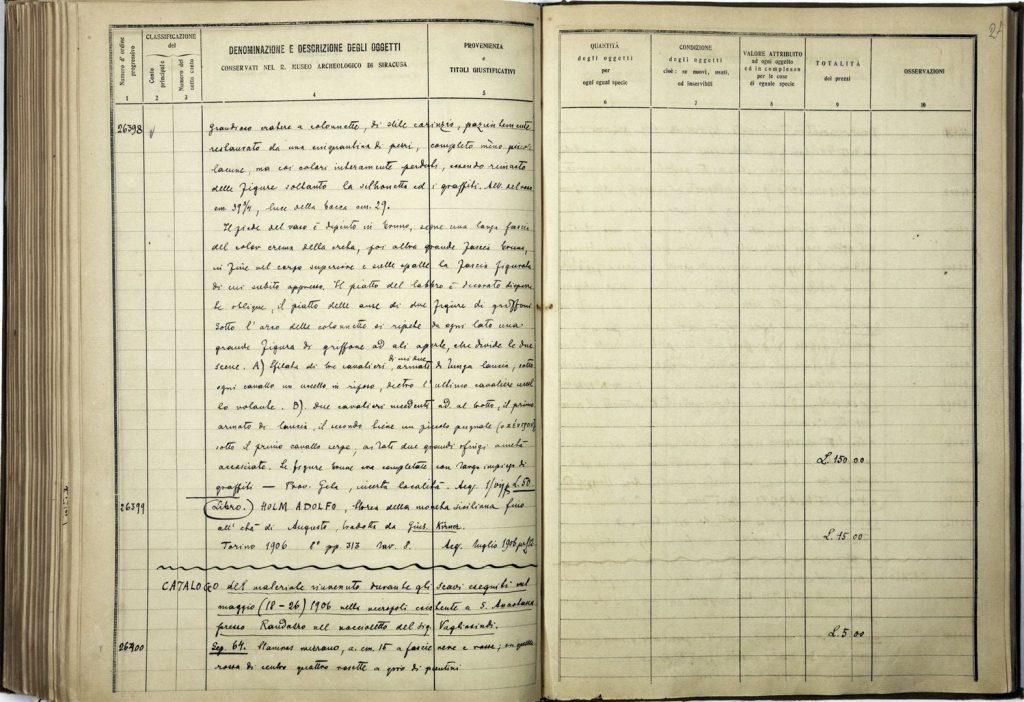 Numero d'ordine progressivo
CLASSIFICAZIONE del
Conto principale
Numero del sotto conto
DENOMINAZIONE E DESCRIZIONE DEGLI OGGETTI
CONSERVATI NEL R. MUSEO ARCHEOLOGICO DI SIRACUSA
PROVENIENZA
e
TITOLI GIUSTIFICATIVI
1 2 3 4 5
26398
Grandioso cratere a colonnette, di stile corinzio, pazientemente
restaurato da una cinquantina di pezzi, completo meno piccole
lacune, ma coi colori interamente perduti, essendo rimasto
delle figure soltanto la silhouetta ed i graffiti. Alt. del vaso
cm 39 3/4, luce della bocca cm. 29.
Il piede del vaso è dipinto in bruno, segue una larga fascia
del color crema della creta, poi altra grande fascia bruna,
in fine nel corpo superiore e sulle spalle la fascia figurata
di cui subito appresso. Il piatto del labbro è decorato di
oblique, il piatto delle anse di due figure di griffoni
Sotto l'arco delle colonnette si ripete da ogni lato una
grande figura di griffone ad ali aperte, che divide le due
scene. A) Sfilata di tre cavalieri, di cui due armati di lunga lancia, sotto
ogni cavallo un uccello in riposo, dietro l'ultimo cavaliere uccel
lo volante. B). Due cavalieri incedenti ad. al trotto, il primo
armato di lancia, il secondo tiene un piccolo pugnale
sotto il primo cavallo serpe, ai lati due grandi sfingi
accosciate. Le figure brune eran completate con largo impiego di
graffiti — Prov. Gela, incerta località. Acq. L. 50
26399
Libro. HOLM ADOLFO, Storia della moneta siciliana fino
all'età di Augusto, tradotta da Gius. Kirner.
Torino 1906 8° pp. 313 tav. 8. Acq. luglio 1906
CATALOGO del materiale rinvenuto durante gli scavi eseguiti nel
maggio (18-26) 1906 nella necropoli esistente a S. Anastasia
presso Randazzo nel noccioleto del Sig. Vagliasindi.
26400
Sep. 64. Stamnos a. cm. 15 a fascie nere e rosse;
rossa di centro quattro rosette a giro di puntini
QUANTITÀ
degli oggetti
per
ogni egual specie
CONDIZIONE
degli oggetti
cioè: se nuovi, usati,
od inservibili
VALORE ATTRIBUITO
ad ogni oggetto
ed in complesso
per le cose
di eguale specie
TOTALITÀ
dei prezzi
OSSERVAZIONI
6 7 8 9 10
L. 150 00
L. 15 00
L. 5 00